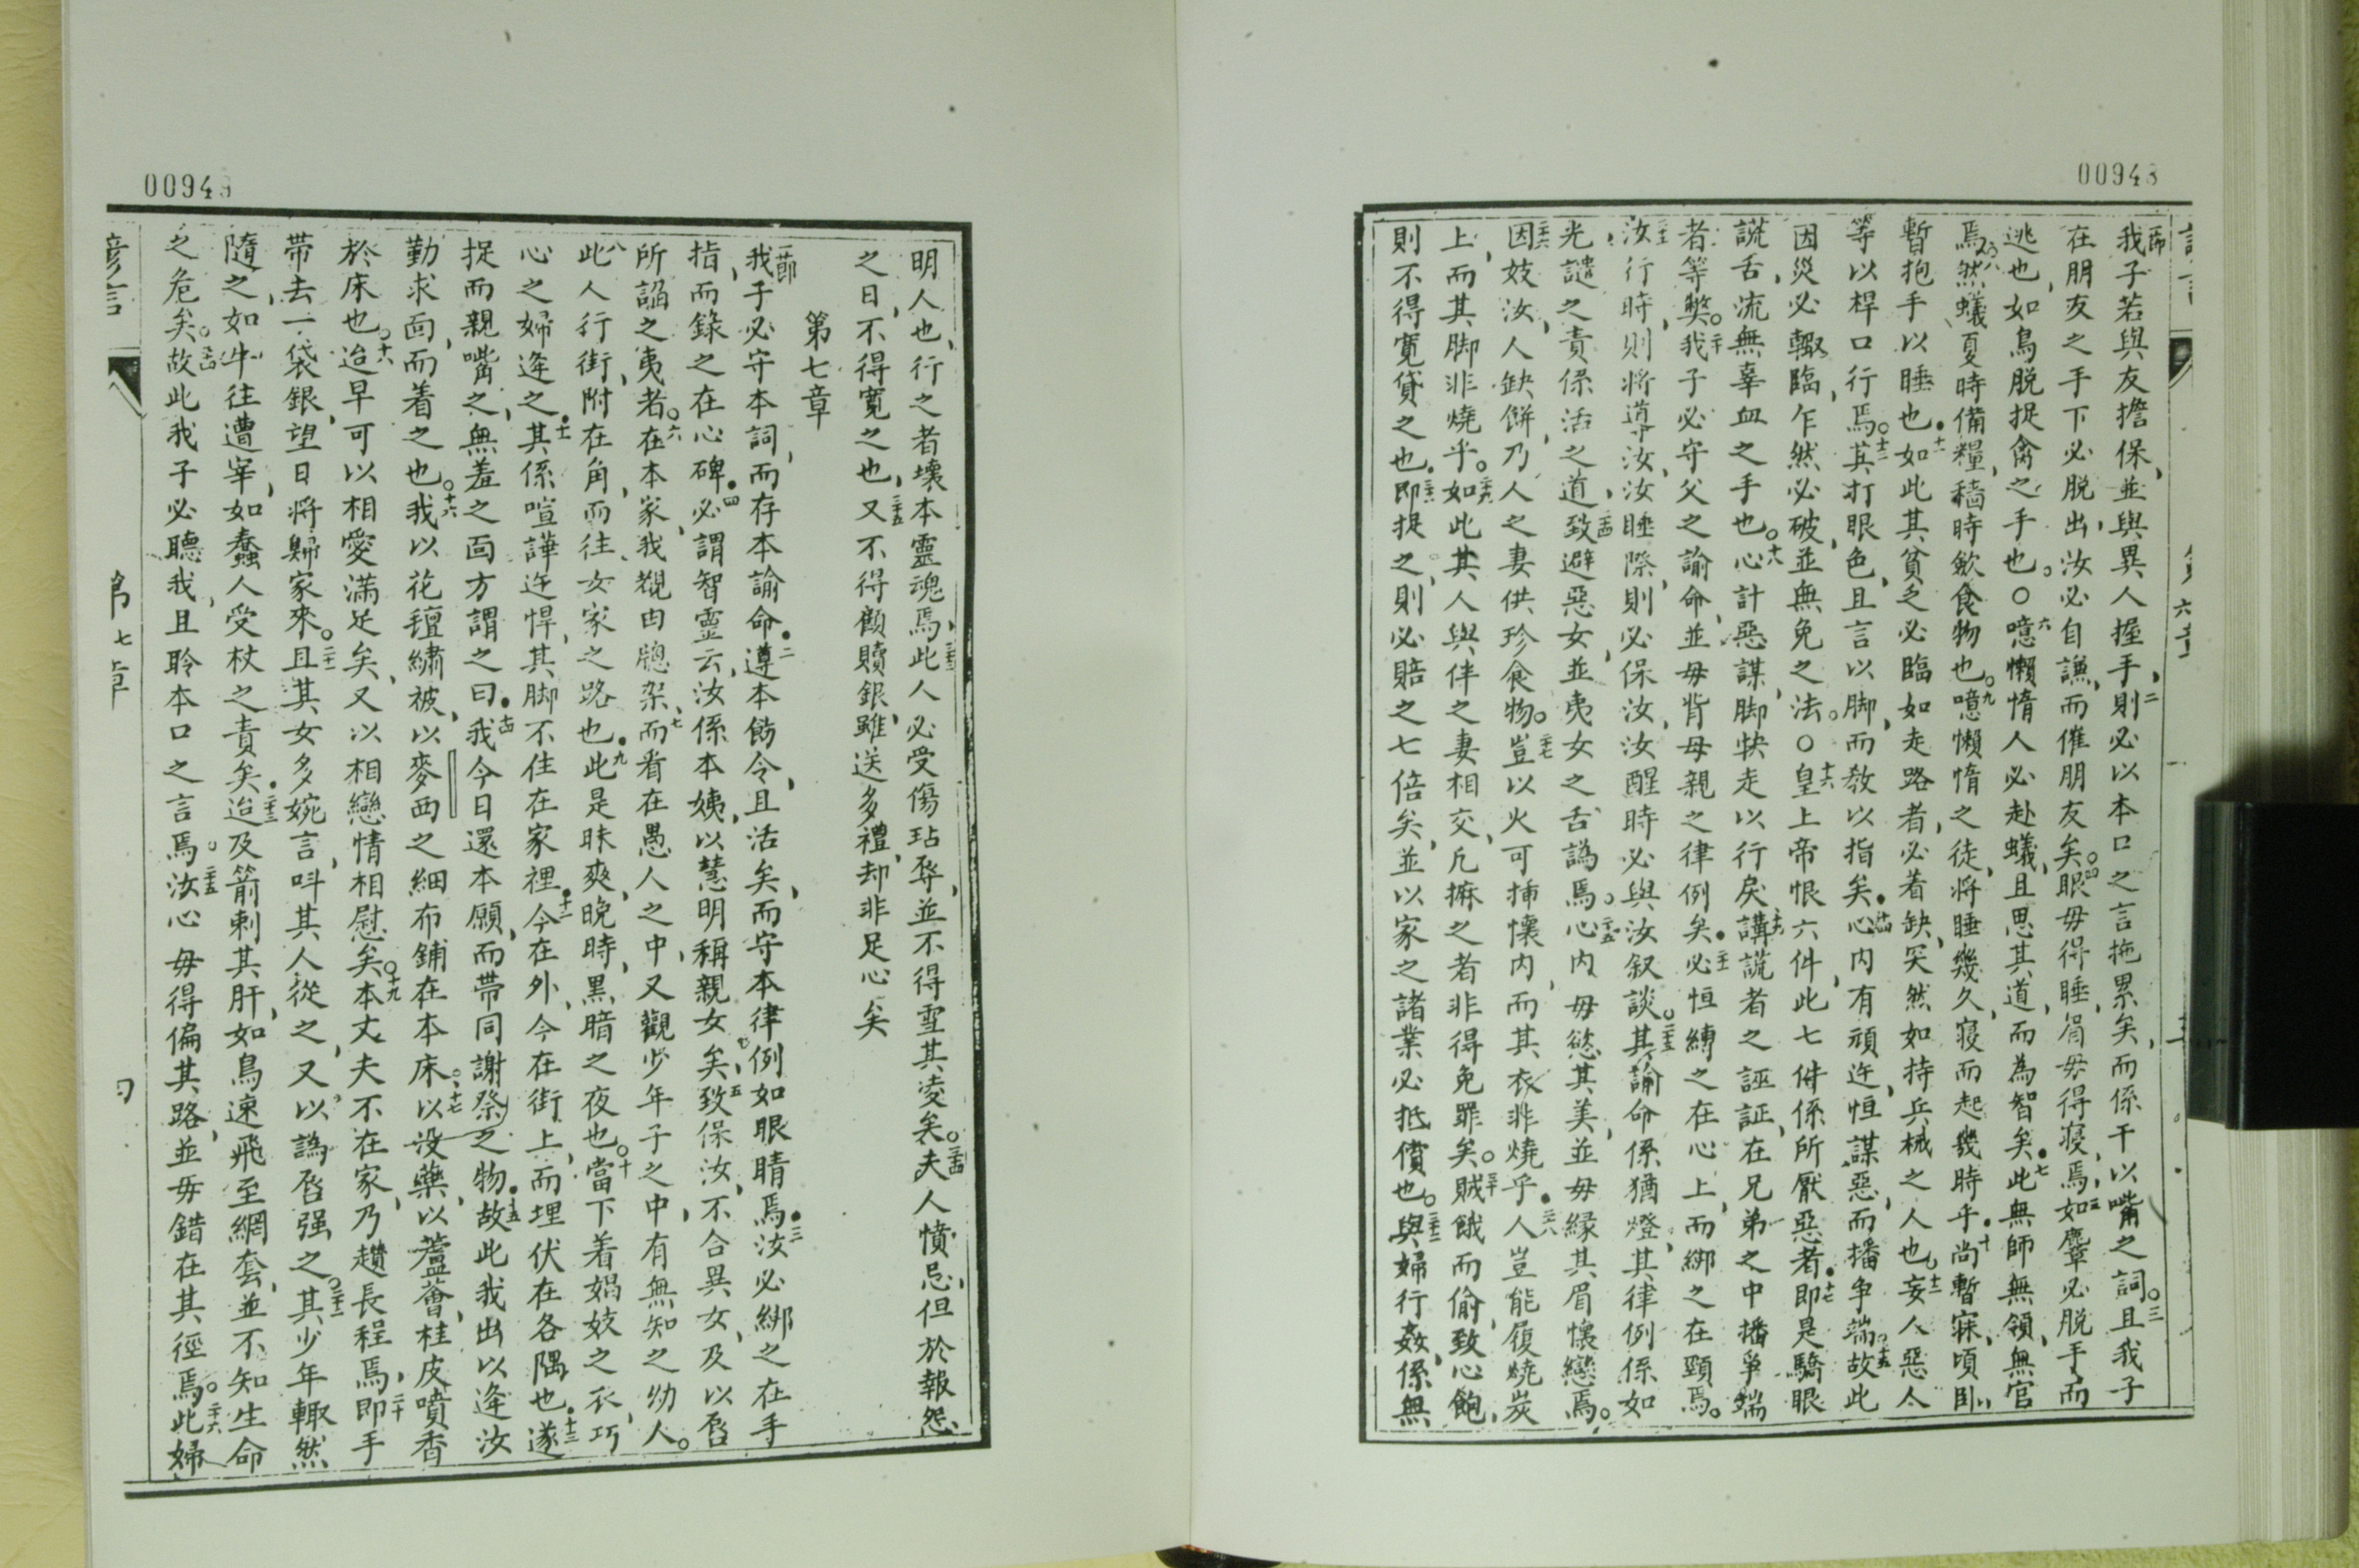 00948
我子若與友擔保、並與異人握手、二則必以本口之言拖累矣、而係干以嘴之詞。三且我子
在朋友之手下必脫出、汝必自謙、而催朋友矣。四眼毋得睡、眉毋得寢焉、五如麞必脫手而
逃也、如鳥脫捉禽之手也。○六噫懶惰人必赴蟻、且思其道、而為智矣。七此無師無領、無官
焉、八然蟻夏時備糧、穡時歛食物也。九噫懶惰之徒、將睡幾久、寢而起幾時乎。十尚暫寐、頃臥、
暫抱手以睡也。十一如此其貧乏必臨如走路者、必着缺突然如持兵械之人也。十二妄人惡人
等以桿口行焉。十三其打眼色、且言以脚、而教以指矣。十四心內有頑迕、恒謀惡、而播爭端。十五故此
因災必輙臨、乍然必破、並無免之法。○十六皇上帝恨六件、此七件係所厭惡者。十七即是驕眼
謊舌、流無辜血之手也。十八心計惡謀、脚快走以行戾、十九講謊者之誣証、在兄弟之中播爭端
者等獘。二十我子必守父之諭命、並毋背母親之律例矣。二十一必恒縛之在心上、而綁之在頸焉。
二十二汝行時、則將導汝、汝睡際、則必保汝、汝醒時必與汝叙談。二十三其諭命係猶燈、其律例係如
光、譴之責係活之道、二十四致避惡女、並夷女之舌譌焉。二十五心內毋慾其美、並毋緣其眉懷戀焉。
二十六因妓汝、人缺餅、乃人之妻供珍食物。二十七豈以火可揷懷內、而其衣非燒乎。二十八人豈能履燒炭
上、而其脚非燒乎。二十九如此其人與伴之妻相交、凡撫之者非得免罪矣。三十賊餓而偷、致心飽、
則不得寬貸之也。三十一即捉之、則必賠之七倍矣、並以家之諸業必抵償也。三十二與婦行姦、係無
00948
明人也、行之者壞本靈魂焉、三十三此人必受傷玷辱、並不得雪其凌矣。三十四夫人憤忌、但於報怨
之日、不得寬之也、三十五又不得顧贖銀、雖送多禮、却非足心矣
第七章
一節我子必守本詞、而存本諭命。二遵本飭令、且活矣、而守本律例如眼睛焉。三汝必綁之在手
指、而錄之在心碑。四必謂智靈云、汝係本姨、以慧明稱親女矣、五致保汝、不合異女、及以唇
所諂之夷者。六在本家、我覌由牕架、七而看在愚人之中、又觀少年子之中、有無知之幼人。
八此人行街、附在角、而往女家之路也。九此是昧爽、晚時、黑暗之夜也。十當下着娼妓之衣、巧
心之婦逄之。十一其係喧譁迕悍、其脚不住在家裡。十二今在外、今在街上、而埋伏在各隅也。十三遂
捉而親嘴之、無羞之面方謂之曰。十四我今日還本願、而帶同謝祭之物。十五故此我出以逄汝
勤求面、而着之也。十六我以花氊繡被、以麥西之細布鋪在本床。十七以没藥、以蘆薈、桂皮噴香
於床也。十八迨早可以相愛滿足矣、又以相戀情相慰矣。十九本丈夫不在家、乃趲長程焉、二十即手
帶去一袋銀、望日將歸家來。二十一且其女多婉言、呌其人從之、又以譌唇强之。二十二其少年輙然
隨之、如牛往遭宰、如蠢人受杖之責矣。二十三迨及箭剌其肝、如鳥速飛至網套、並不知生命
之危矣。二十四故此我子必聽我、且聆本口之言焉。二十五汝心毋得偏其路、並毋錯在其徑焉。二十六此婦
第七章